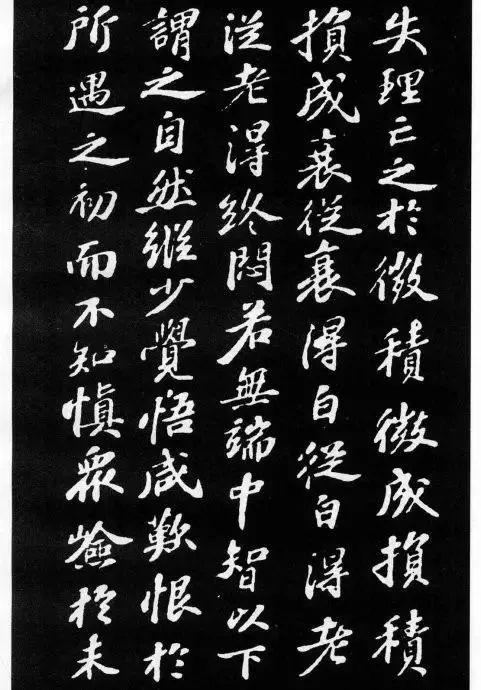 失理亡之於微積微成損積
損成衰從衰得白從白得老
從老得終悶若無端中智以下
謂之自然縱少覺悟咸歎恨於
所遇之初而不知慎眾險於未